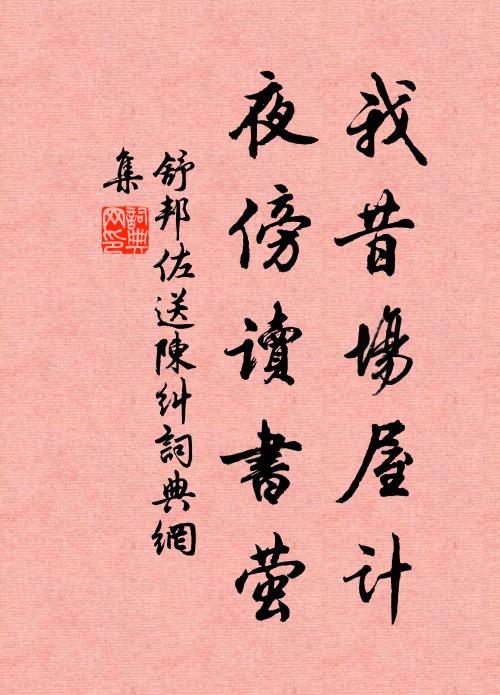 我昔場屋計
夜傍讀書螢
舒邦佐送陳糾詞典網
集
詞典
网印